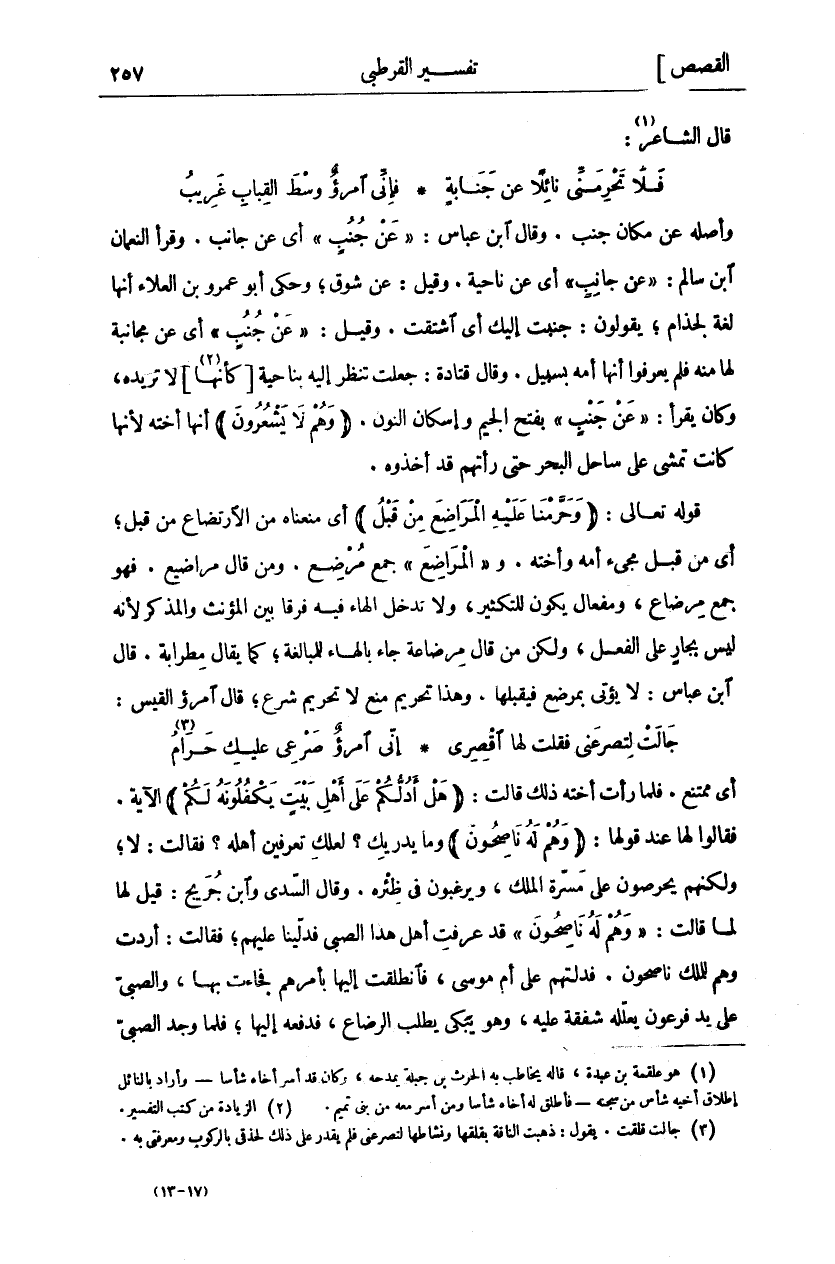 القصص ] تفســير القرطبى ٢٥٧
قال الشاعر (١) :
فَـلَا تَحْرِمَـنِّى نائِلًا عن جَنَـابةٍ * فإنّى آمرؤٌ وسْطَ القِبابِ غَرِيبُ
وأصله عن مكان جنب . وقال آبن عباس : « عَنْ جُنُبٍ » أى عن جانب . وقرأ النعمان
آبن سالم : «عن جانِبٍ» أى عن ناحية . وقيل : عن شوق ؛ وحكى أبو عمرو بن العلاء أنها
لغة لجذام ؛ يقولون : جنبت إليك أى آشتقت . وقيـل : « عَنْ جُنُبٍ » أى عن مجانبة
لها منه فلم يعرفوا أنها أمه بسبيل . وقال قتادة : جعلت تنظر إليه بناحية [ كأنها (٢) ] لا تريده،
وكان يقرأ : « عَنْ جَنْبٍ » بفتح الجيم وإسكان النون . ﴿ وَهُمْ لَا يَشْعُرُونَ ﴾ أنها أخته لأنها
كانت تمشى على ساحل البحر حتى رأتهم قد أخذوه .
قوله تعـالى : ﴿ وَحَرَّمْنَا عَلَيْـهِ الْمَرَاضِعَ مِنْ قَبْلُ ﴾ أى منعناه من الآرتضاع من قبل ؛
أى من قبـل مجىء أمه وأخته . و « الْمَرَاضِعَ » جمع مُرْضِـع . ومن قال مراضيع . فهو
جمع مِرضاع ، ومفعال يكون للتكثير، ولا تدخل الهاء فيـه فرقا بين المؤنث والمذكر لأنه
ليس بجارٍ على الفعـل ، ولكن من قال مِرضاعة جاء بالهـاء للمبالغة ؛ كما يقال مِطرابة . قال
آبن عباس : لا يؤتى بمرضع فيقبلها . وهذا تحريم منع لا تحريم شرع ؛ قال آمرؤ القيس :
جَالَتْ لِتصرعَنى فقلت لها آقْصِرِى (٣) * إنّى آمرؤٌ صَرْعِى عليـكِ حَرَامُ
أى ممتنع . فلما رأت أخته ذلك قالت : ﴿ هَلْ أَدُلُّكُمْ عَلَى أَهْلِ بَيْتٍ يَكْفُلُونَهُ لَكُمْ ﴾ الآية .
فقالوا لها عند قولها : ﴿ وَهُمْ لَهُ نَاصِحُونَ ﴾ وما يدريكِ ؟ لعلكِ تعرفين أهله ؟ فقالت : لا ؛
ولكنهم يحرصون على مَسَرّة الملك ، ويرغبون فى ظِئْره . وقال السّدى وآبن جُرَيج : قيل لها
لمـا قالت : « وَهُمْ لَهُ نَاصِحُونَ » قد عرفتِ أهل هذا الصبى فدلّينا عليهم ؛ فقالت : أردت
وهم للملك ناصحون . فدلتهم على أم موسى ، فآنطلقت إليها بأمرهم فجاءت بهـا ، والصبىّ
على يد فرعون يعلّله شفقة عليه ، وهو يبكى يطلب الرضاع ، فدفعه إليها ؛ فلما وجد الصبىّ
(١) هو علقمة بن عبدة ، قاله يخاطب به الحرث بن جبلة يمدحه ، وكان قد أسر أخاه شأسا — وأراد بالنائل
إطلاق أخيه شأس من سجنه — فأطلق له أخاه شأسا ومن أسر معه من بنى تميم . (٢) الزيادة من كتب التفسير .
(٣) جالت قلقت . يقول : ذهبت الناقة بقلقها ونشاطها لتصرعنى فلم يقدر على ذلك لحذقى بالركوب ومعرفتى به .
(١٧-١٣)